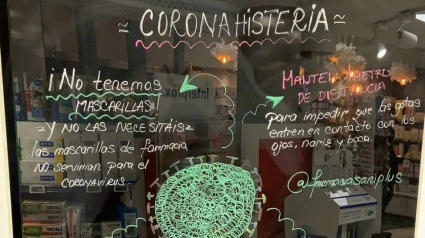 ≈ CORONAHISTERIA ≈
¡No tenemos
MASCARILLAS!
=Y NO LAS NECESITÁIS=
las mascarillas de farmacia
NO servirían para el
CORONAVIRUS
MANTEN 1 METRO
DE DISTANCIA
para impedir que las gotas
entren en contacto con los
ojos, nariz y boca.
@farmaciasaniplus